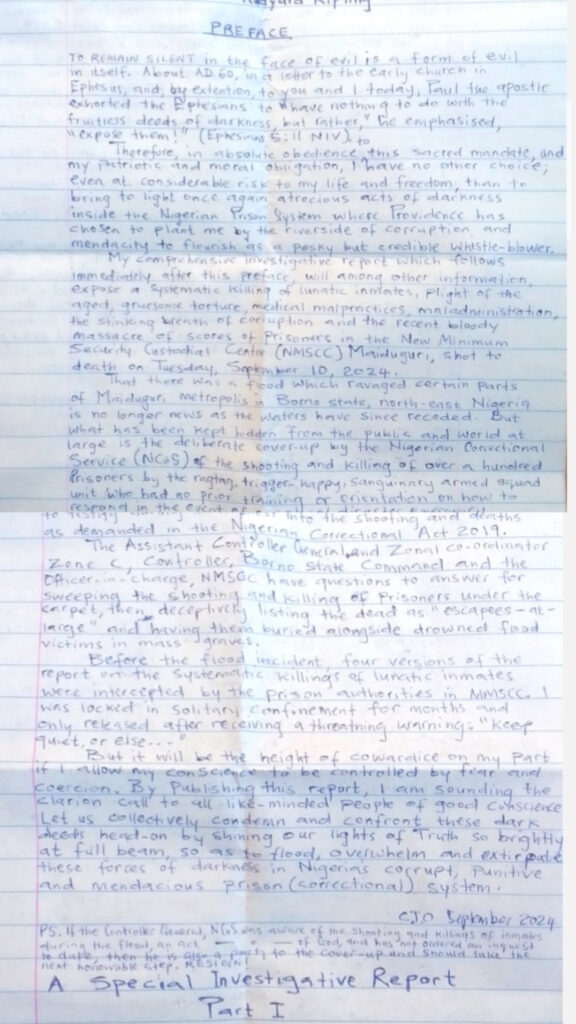 Kipling
PREFACE
TO REMAIN SILENT in the face of evil is a form of evil
in itself. About AD.60, in a letter to the early church in
Ephesus, and, by extention, to you and I today, Paul the apostle
exhorted the Ephesians to "have nothing to do with the
fruitless deeds of darkness, but rather," he emphasised,
"expose them!" (Ephesians 5:11 NIV). to
Therefore, in absolute obedience, this sacred mandate, and
my patriotic and moral obligation, I have no other choice;
even at considerable risk to my life and freedom, than to
bring to light once again atrocious acts of darkness
inside the Nigerian Prison System where Providence has
chosen to plant me by the riverside of corruption, and
mendacity to flourish as a pesky but credible whistle-blower.
My comprehensive investigative report which follows
immediately after this preface, will among other information,
expose a systematic killing of lunatic inmates, plight of the
aged, gruesome torture, medical malpractices, maladministration,
the stinking breath of corruption and the recent bloody
massacre of scores of Prisoners in the New Minimum
Security Custodial Centre (NMSCC) Maiduguri, shot to
death on Tuesday, September 10, 2024.
That there was a flood which ravaged certain parts
of Maiduguri metropolis in Borno state, north-east Nigeria
is no longer news as the waters have since receded. But
what has been kept hidden from the public and world at
large is the deliberate cover-up by the Nigerian Correctional
Service (NCoS) of the shooting and killing of over a hundred
Prisoners by the ragtag, trigger-happy, sanguinary armed squad
unit who had no prior training or orientation on how to
respond in the event of
into the shooting and deaths
as demanded in the Nigerian Correctional Act 2019.
The Assistant Controller General and Zonal co-ordinator
Zone C, Controller, Borno State Command and the
Officer-in-charge, NMSCC have questions to answer for
sweeping the shooting and killing of Prisoners under the
carpet, then, deceptively listing the dead as "escapees-at-
large" and having them buried alongside drowned flood
victims in mass graves.
Before the flood incident, four versions of the
report on the systematic killings of lunatic inmates
were intercepted by the prison authorities in MMSCC. I
was locked in solitary confinement for months and
only released after receiving a threatning warning: "Keep
quiet, or else..."
But it will be the height of cowardice on my part
if I allow my conscience to be controlled by fear and
coercion. By Publishing this report, I am sounding the
clarion call to all like-minded people of good conscience
Let us collectively condemn and confront these dark
deeds head-on by shining our lights of Truth so brightly
at full beam, so as to flood, overwhelm and extirpate
these forces of darkness in Nigeria's corrupt, punitive
and mendacious prison (correctional) system.
C.J.O September 2024
PS. If the Controller General, NCoS was aware of the shooting and killings of inmates
during the flood, an act of God, and has not ordered an inquest
to date, then he is also a party to the cover-up and should take the
next honourable step. RESIGN!
A Special Investigative Report
Part I